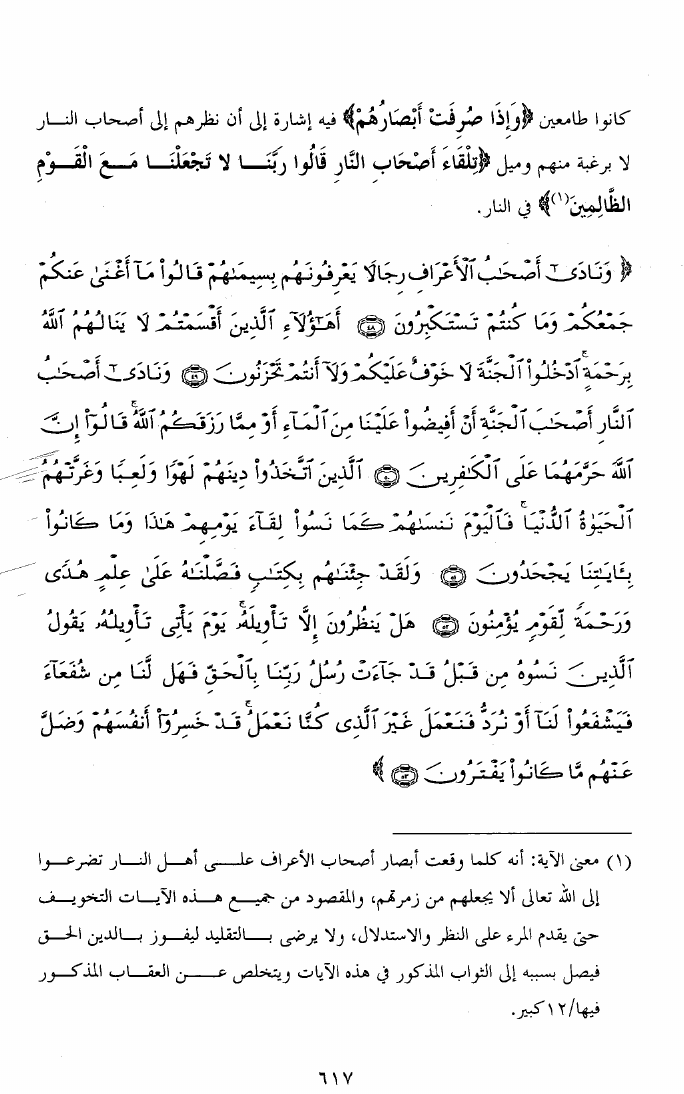 كانوا طامعين ﴿وَإِذَا صُرِفَتْ أَبْصَارُهُمْ﴾ فيه إشارة إلى أن نظرهم إلى أصحاب النــار
لا برغبة منهم وميل ﴿تِلْقَاءَ أَصْحَابِ النَّارِ قَالُوا رَبَّنَــا لا تَجْعَلْنَــا مَــعَ الْقَــوْمِ
الظَّالِمِينَ(١)﴾ في النار.
﴿ وَنَادَىٰٓ أَصْحَٰبُ ٱلْأَعْرَافِ رِجَالًا يَعْرِفُونَهُم بِسِيمَىٰهُمْ قَالُوا۟ مَآ أَغْنَىٰ عَنكُمْ
جَمْعُكُمْ وَمَا كُنتُمْ تَسْتَكْبِرُونَ ٤٨ أَهَٰٓؤُلَآءِ ٱلَّذِينَ أَقْسَمْتُمْ لَا يَنَالُهُمُ ٱللَّهُ
بِرَحْمَةٍ ۚ ٱدْخُلُوا۟ ٱلْجَنَّةَ لَا خَوْفٌ عَلَيْكُمْ وَلَآ أَنتُمْ تَحْزَنُونَ ٤٩ وَنَادَىٰٓ أَصْحَٰبُ
ٱلنَّارِ أَصْحَٰبَ ٱلْجَنَّةِ أَنْ أَفِيضُوا۟ عَلَيْنَا مِنَ ٱلْمَآءِ أَوْ مِمَّا رَزَقَكُمُ ٱللَّهُ ۚ قَالُوٓا۟ إِنَّ
ٱللَّهَ حَرَّمَهُمَا عَلَى ٱلْكَٰفِرِينَ ٥٠ ٱلَّذِينَ ٱتَّخَذُوا۟ دِينَهُمْ لَهْوًا وَلَعِبًا وَغَرَّتْهُمُ
ٱلْحَيَوٰةُ ٱلدُّنْيَا ۚ فَٱلْيَوْمَ نَنسَىٰهُمْ كَمَا نَسُوا۟ لِقَآءَ يَوْمِهِمْ هَٰذَا وَمَا كَانُوا۟
بِـَٔايَٰتِنَا يَجْحَدُونَ ٥١ وَلَقَدْ جِئْنَٰهُم بِكِتَٰبٍ فَصَّلْنَٰهُ عَلَىٰ عِلْمٍ هُدًى
وَرَحْمَةً لِّقَوْمٍ يُؤْمِنُونَ ٥٢ هَلْ يَنظُرُونَ إِلَّا تَأْوِيلَهُۥ ۚ يَوْمَ يَأْتِى تَأْوِيلُهُۥ يَقُولُ
ٱلَّذِينَ نَسُوهُ مِن قَبْلُ قَدْ جَآءَتْ رُسُلُ رَبِّنَا بِٱلْحَقِّ فَهَل لَّنَا مِن شُفَعَآءَ
فَيَشْفَعُوا۟ لَنَآ أَوْ نُرَدُّ فَنَعْمَلَ غَيْرَ ٱلَّذِى كُنَّا نَعْمَلُ ۚ قَدْ خَسِرُوٓا۟ أَنفُسَهُمْ وَضَلَّ
عَنْهُم مَّا كَانُوا۟ يَفْتَرُونَ ٥٣ ﴾
(١) معنى الآية: أنه كلما وقعت أبصار أصحاب الأعراف علــى أهــل النــار تضرعــوا
إلى الله تعالى ألا يجعلهم من زمرتهم، والمقصود من جميــع هــذه الآيــات التخويــف
حتى يقدم المرء على النظر والاستدلال، ولا يرضى بــالتقليد ليفــوز بــالدين الحــق
فيصل بسببه إلى الثواب المذكور في هذه الآيات ويتخلص عــن العقــاب المذكــور
فيها/١٢ كبير.
٦١٧